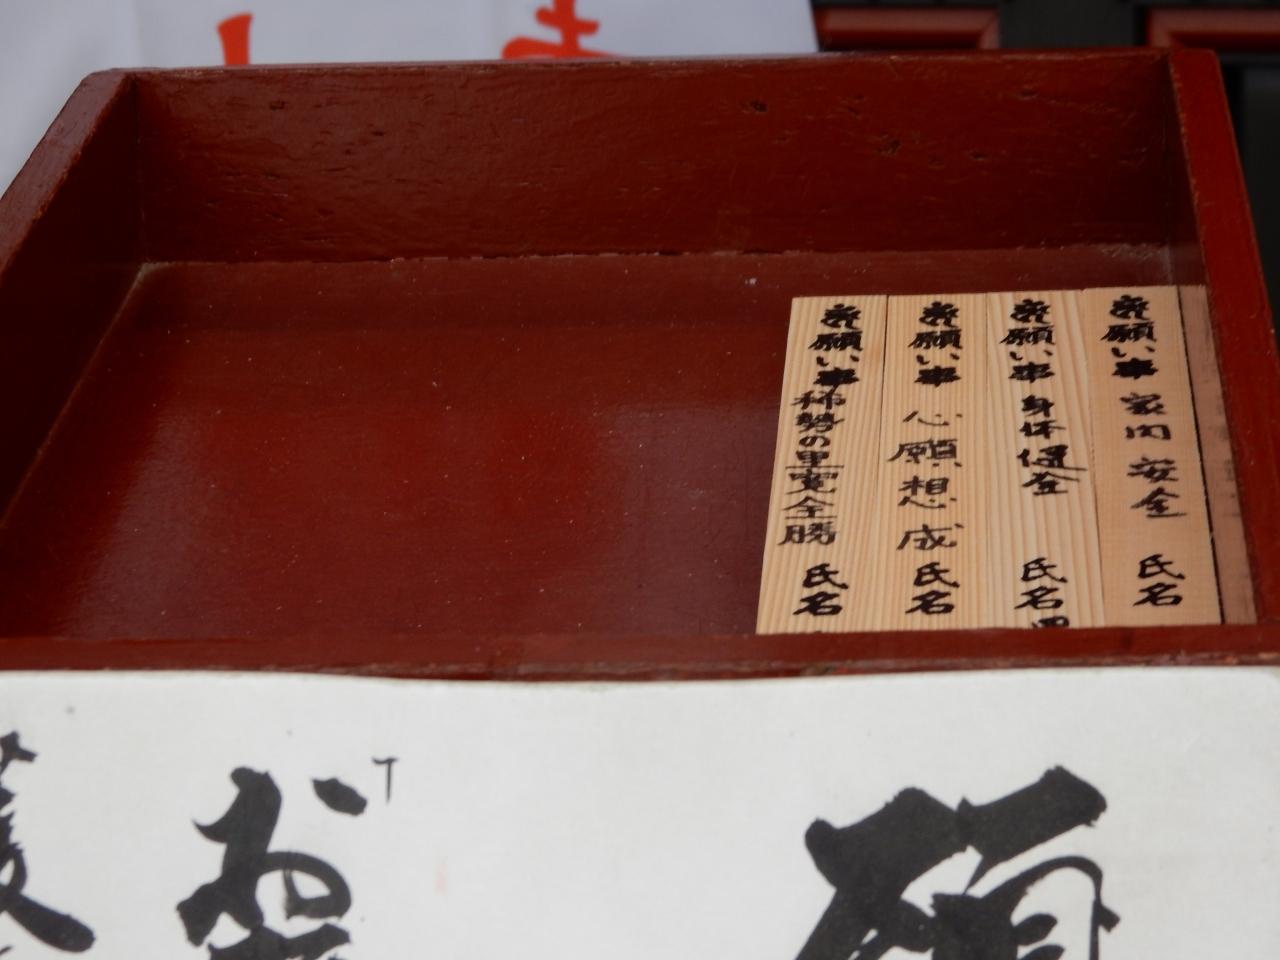 お願い事 家内安全 氏名
お願い事 身体健全 氏名
お願い事 心願想成 氏名
お願い事 稀勢の里寛全勝 氏名
願
お